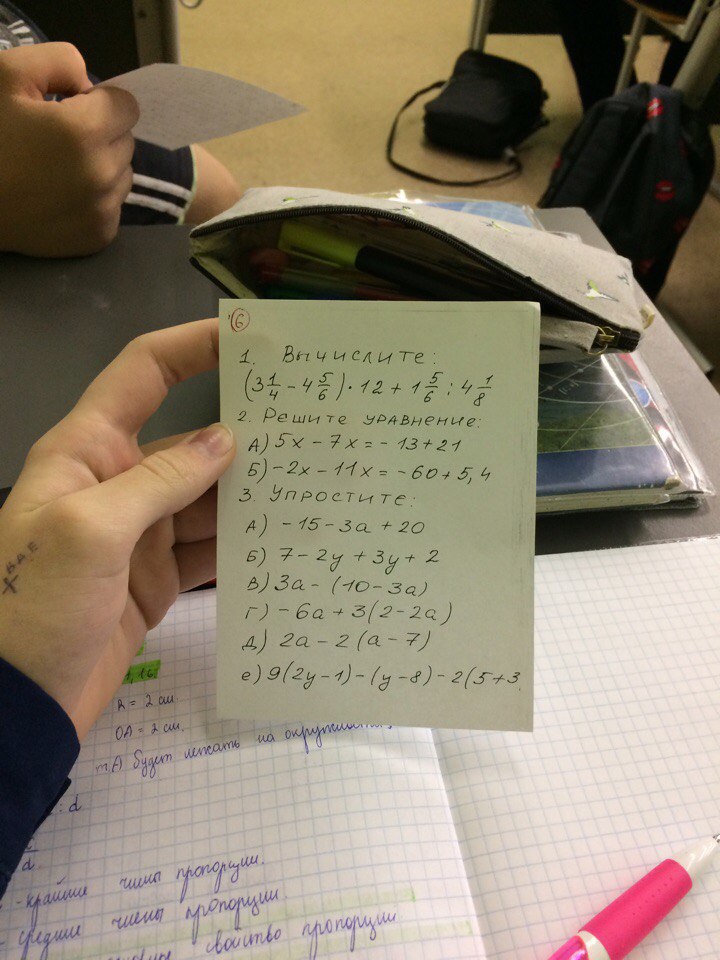 6
1. Вычислите:
(3 1/4 - 4 5/6) · 12 + 1 5/6 : 4 1/8
2. Решите уравнение:
А) 5x - 7x = - 13 + 21
Б) -2x - 11x = -60 + 5,4
3. Упростите:
А) -15 - 3a + 20
Б) 7 - 2y + 3y + 2
В) 3a - (10 - 3a)
Г) -6a + 3(2 - 2a)
Д) 2a - 2(a - 7)
е) 9(2y - 1) - (y - 8) - 2(5 + 3
R = 2 см
OA = 2 см.
т.А будет лежать на окружности.
: d
d
- крайние члены пропорции.
средние члены пропорции.
свойство пропорции